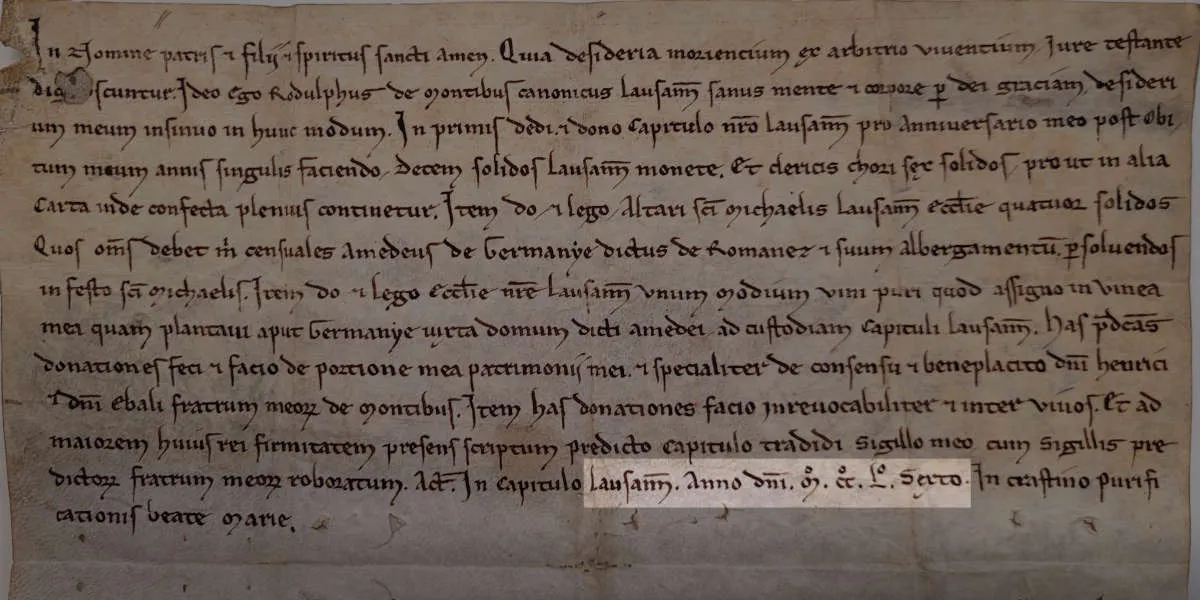 In Nomine patris ⁊ filii ⁊ spiritus sancti amen. Quia desideria moriencium ex arbitrio viventium Jure testante
scuntur. Ideo Ego Rodulphus de Montibus canonicus Lausam̄ sanus mente ⁊ corpore ꝑ dei graciam, desideri
um meum insinuo in hunc modum. In primis dedi. ⁊ dono Capitulo nr̄o Lausam̄ pro Anniversario meo post Obi
tum meum annis singulis faciendo, Decem solidos Lausam̄ monete. Et clericis chori sex solidos, pro ut in alia
Carta inde confecta plenius continetur. Item do ⁊ lego Altari sc̄i Michaelis Lausam̄ Ecc̄lie quatuor solidos
Quos om̄s debet m̄ censuales Amedeus de Germanye dictus de Romanez ⁊ suum albergamentū. ꝑsolvendos
in festo sc̄i Michaelis. Item do ⁊ lego Ecc̄lie nr̄e Lausam̄ vnum modium vini puri quod assigno in vinea
mea quam plantaui aput Germanye iuxta domum dicti amedei ad custodiam Capituli Lausam̄. has p̄dc̄as
donationes feci ⁊ facio de portione mea patrimonii mei. ⁊ specialiter de consensu ⁊ beneplacito dn̄i henrici
⁊ dn̄i Ebali fratrum meoꝝ de Montibus. Item has donationes facio inreuocabiliter ⁊ inter viuos. Et ad
maiorem huius rei firmitatem presens scriptum predicto Capitulo tradidi sigillo meo cum sigillis pre
dictoꝝ fratrum meoꝝ roboratum. Act̄. In Capitulo Lausam̄. Anno dn̄i. M̊. cc̊. L̊. Sexto. In crastino purifi
cationis beate Marie.